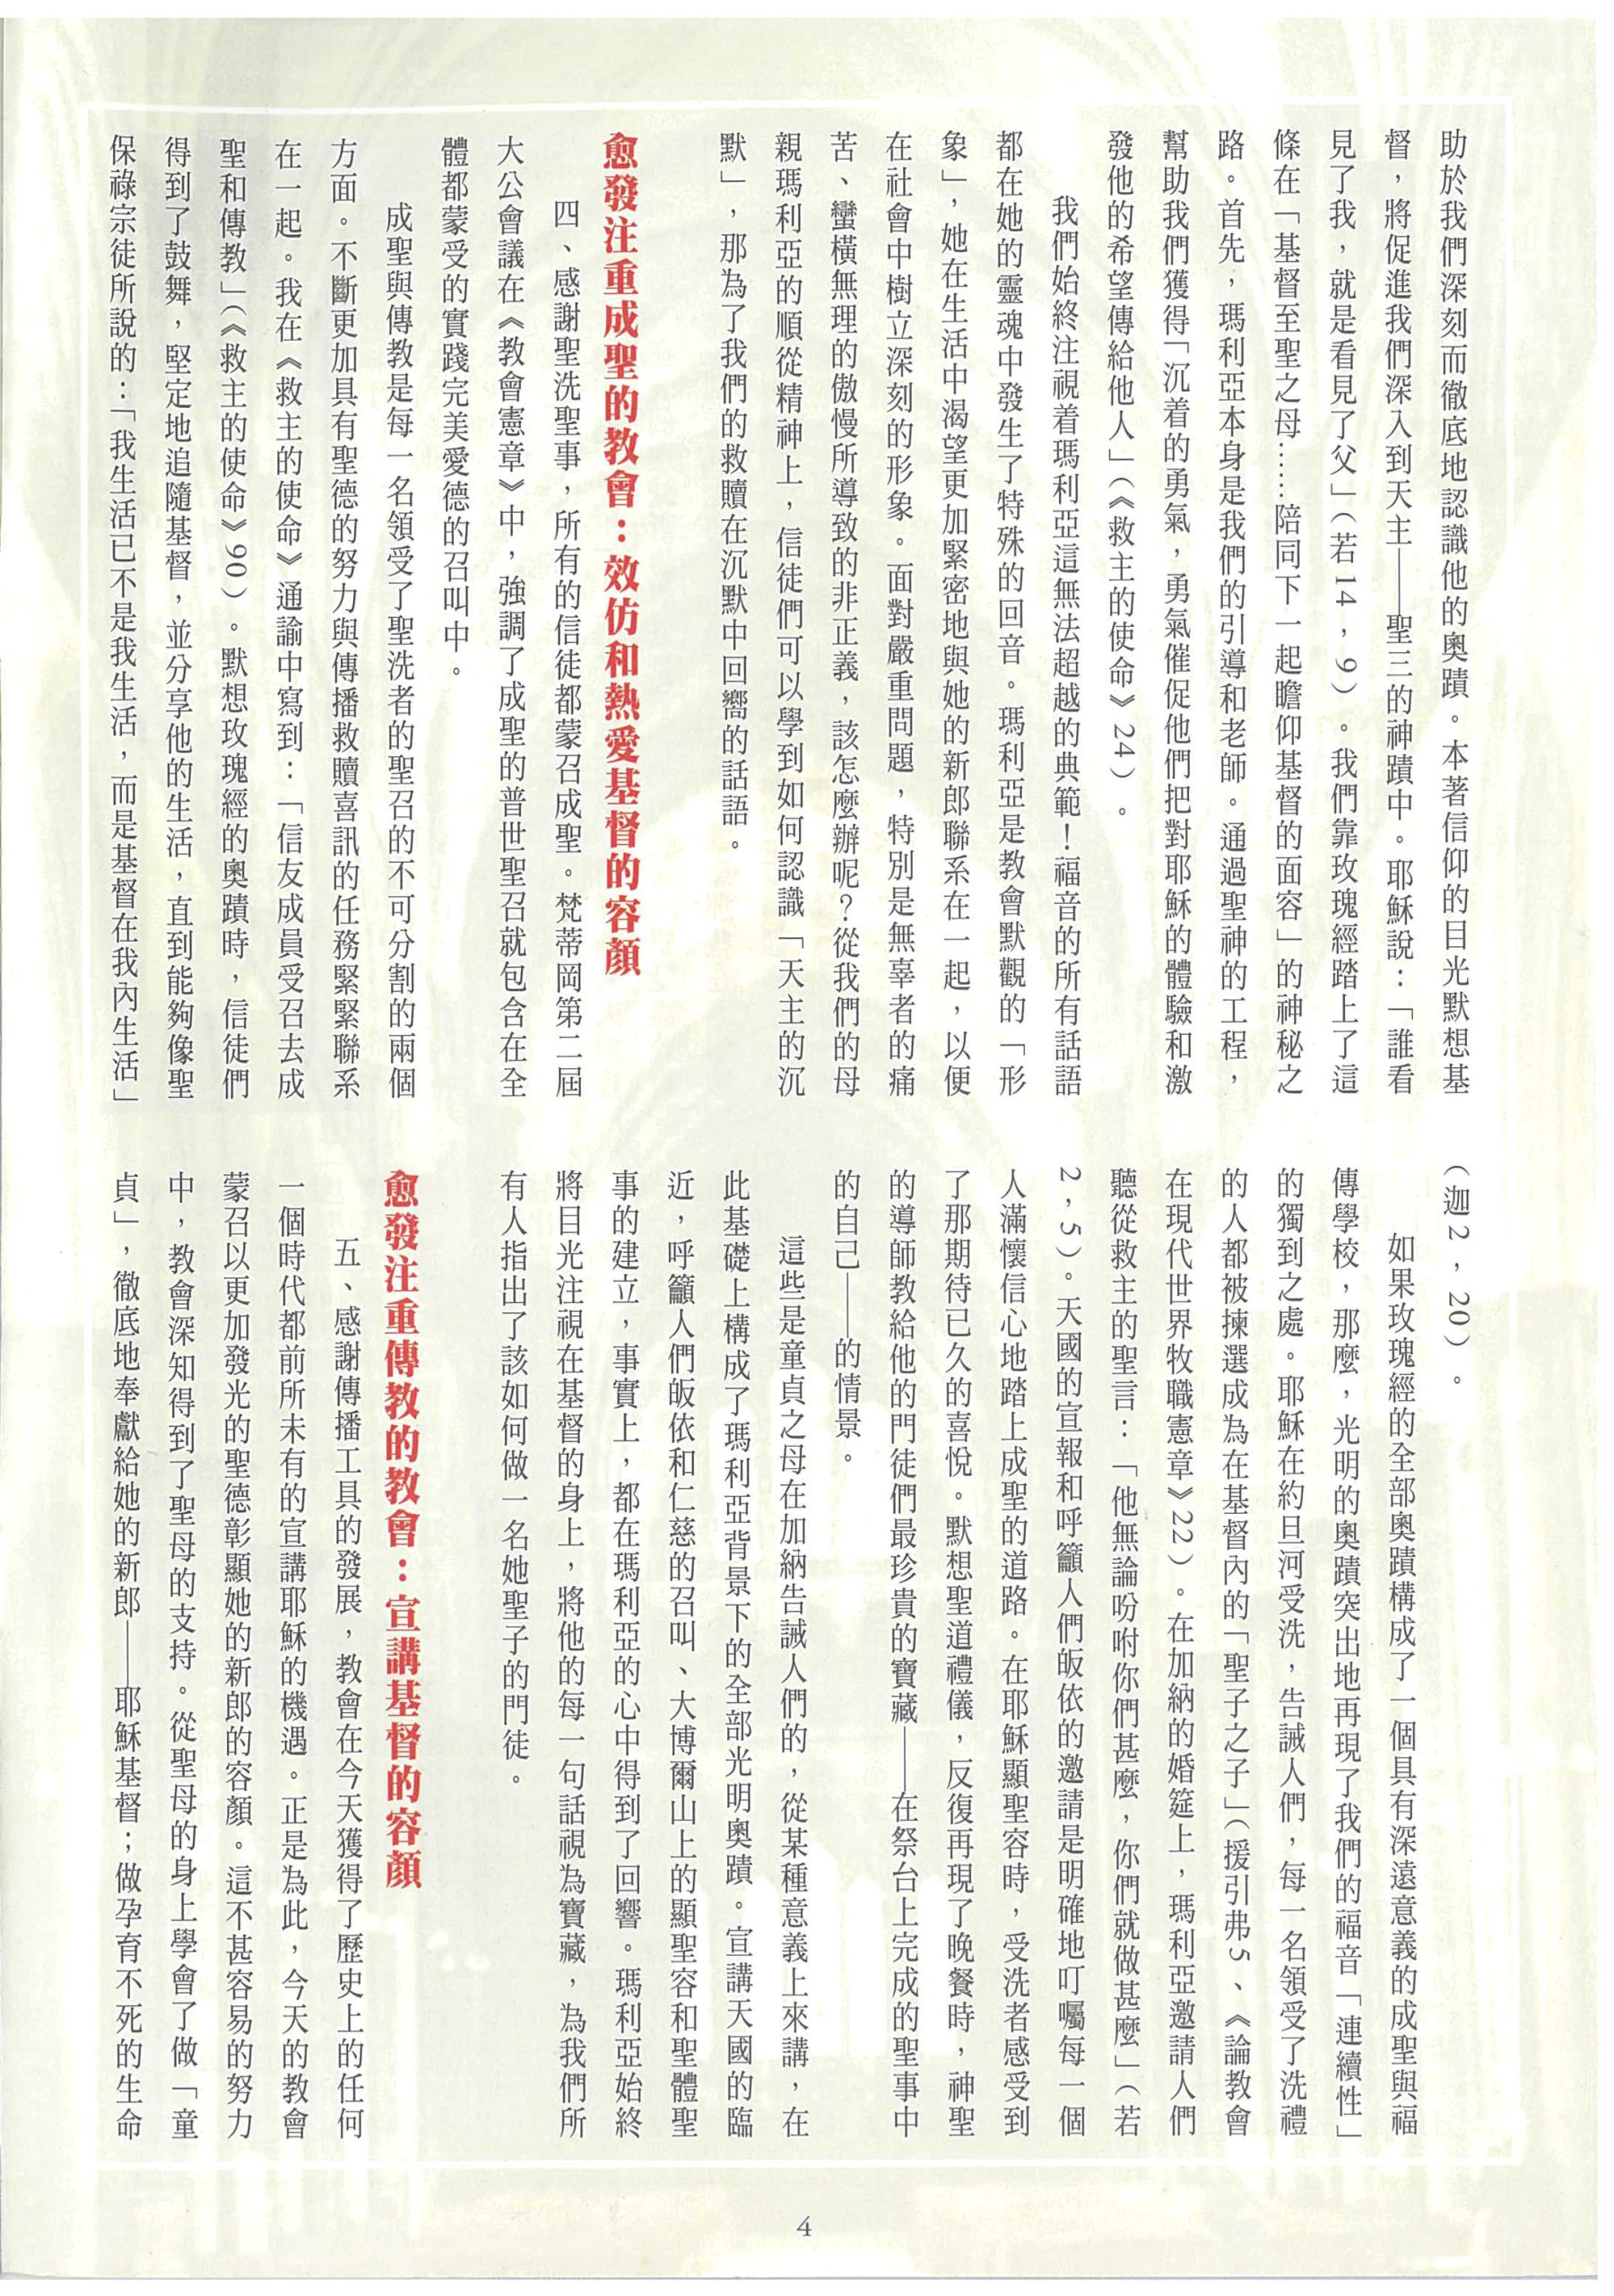 助於我們深刻而徹底地認識他的奧蹟。本著信仰的目光默想基
督，將促進我們深入到天主——聖三的神蹟中。耶穌說：「誰看
見了我，就是看見了父」（若14，9）。我們靠玫瑰經踏上了這
條在「基督至聖之母……陪同下一起瞻仰基督的面容」的神秘之
路。首先，瑪利亞本身是我們的引導和老師。通過聖神的工程，
幫助我們獲得「沉着的勇氣，勇氣催促他們把對耶穌的體驗和激
發他的希望傳給他人」（《救主的使命》24）。
我們始終注視着瑪利亞這無法超越的典範！福音的所有話語
都在她的靈魂中發生了特殊的回音。瑪利亞是教會默觀的「形
象」，她在生活中渴望更加緊密地與她的新郎聯系在一起，以便
在社會中樹立深刻的形象。面對嚴重問題，特別是無辜者的痛
苦、蠻橫無理的傲慢所導致的非正義，該怎麼辦呢？從我們的母
親瑪利亞的順從精神上，信徒們可以學到如何認識「天主的沉
默」，那為了我們的救贖在沉默中回嚮的話語。
愈發注重成聖的教會：效仿和熱愛基督的容顏
四、感謝聖洗聖事，所有的信徒都蒙召成聖。梵蒂岡第二屆
大公會議在《教會憲章》中，強調了成聖的普世聖召就包含在全
體都蒙受的實踐完美愛德的召叫中。
成聖與傳教是每一名領受了聖洗者的聖召的不可分割的兩個
方面。不斷更加具有聖德的努力與傳播救贖喜訊的任務緊緊聯系
在一起。我在《救主的使命》通諭中寫到：「信友成員受召去成
聖和傳教」（《救主的使命》90）。默想玫瑰經的奧蹟時，信徒們
得到了鼓舞，堅定地追隨基督，並分享他的生活，直到能夠像聖
保祿宗徒所說的：「我生活已不是我生活，而是基督在我內生活」
（迦2，20）。
如果玫瑰經的全部奧蹟構成了一個具有深遠意義的成聖與福
傳學校，那麼，光明的奧蹟突出地再現了我們的福音「連續性」
的獨到之處。耶穌在約旦河受洗，告誡人們，每一名領受了洗禮
的人都被揀選成為在基督內的「聖子之子」（援引弗5、《論教會
在現代世界牧職憲章》22）。在加納的婚筵上，瑪利亞邀請人們
聽從救主的聖言：「他無論吩咐你們甚麼，你們就做甚麼」（若
2，5）。天國的宣報和呼籲人們皈依的邀請是明確地叮囑每一個
人滿懷信心地踏上成聖的道路。在耶穌顯聖容時，受洗者感受到
了那期待已久的喜悅。默想聖道禮儀，反復再現了晚餐時，神聖
的導師教給他的門徒們最珍貴的寶藏——在祭台上完成的聖事中
的自己—的情景。
這些是童貞之母在加納告誡人們的，從某種意義上來講，在
此基礎上構成了瑪利亞背景下的全部光明奧蹟。宣講天國的臨
近，呼籲人們皈依和仁慈的召叫、大博爾山上的顯聖容和聖體聖
事的建立，事實上，都在瑪利亞的心中得到了回響。瑪利亞始終
將目光注視在基督的身上，將他的每一句話視為寶藏，為我們所
有人指出了該如何做一名她聖子的門徒。
愈發注重傳教的教會：宣講基督的容顏
五、感謝傳播工具的發展，教會在今天獲得了歷史上的任何
一個時代都前所未有的宣講耶穌的機遇。正是為此，今天的教會
蒙召以更加發光的聖德彰顯她的新郎的容顏。這不甚容易的努力
中，教會深知得到了聖母的支持。從聖母的身上學會了做「童
貞」，徹底地奉獻給她的新郎——耶穌基督；做孕育不死的生命
4